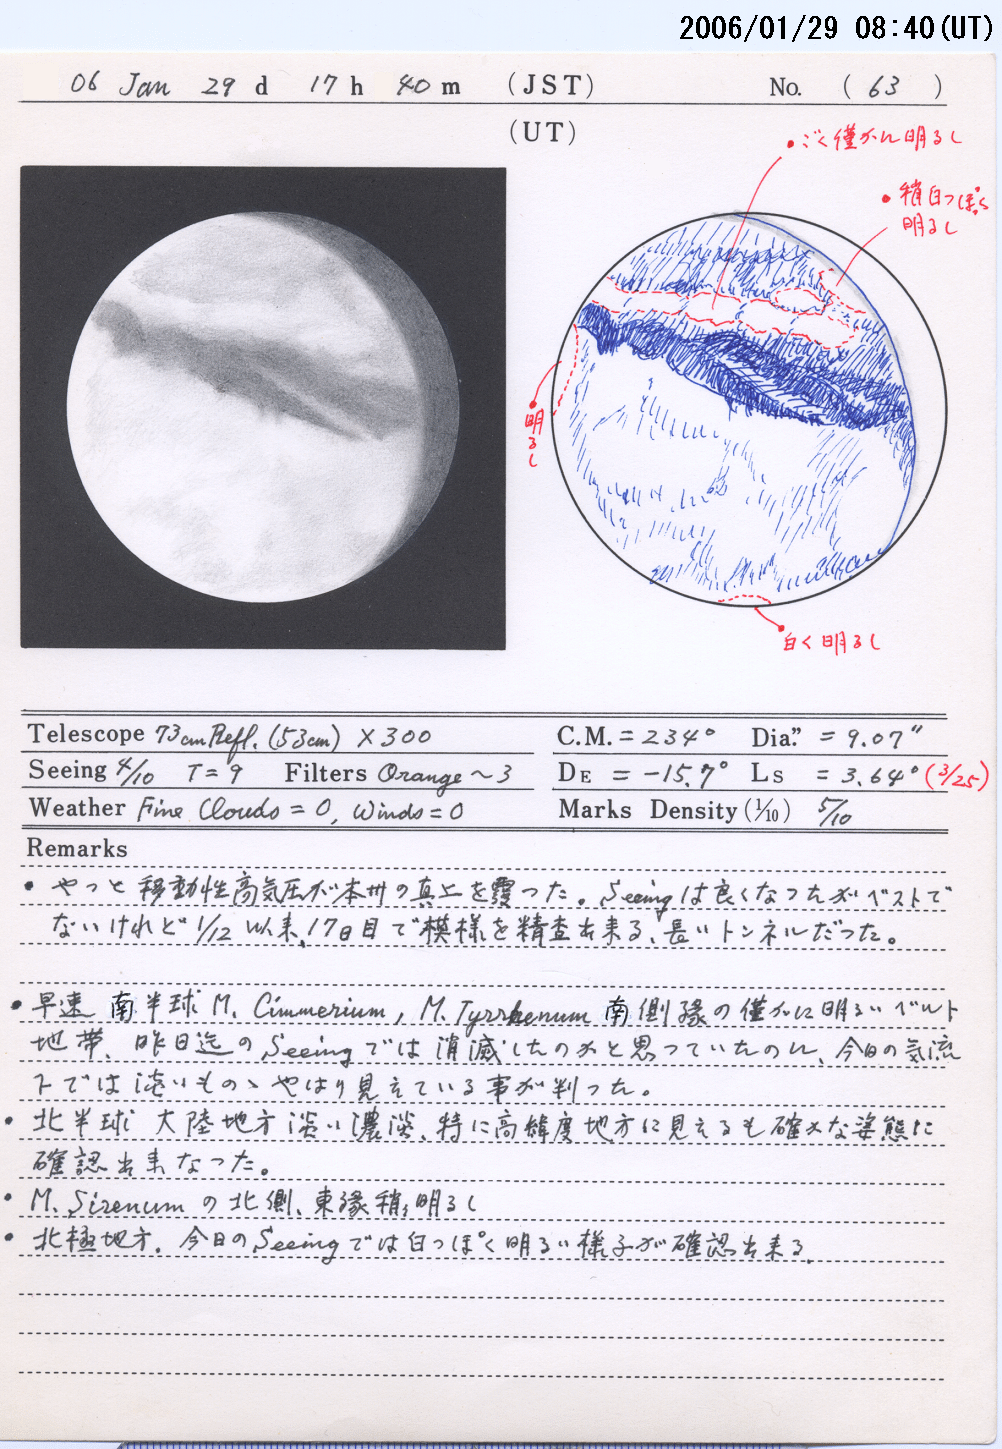 2006/01/29 08:40(UT)
06 Jan 29 d 17 h 40 m (JST) No. ( 63 )
(UT)
・ごく僅かに明るし
・稍白っぽく
明るし
・明るし
・白く明るし
Telescope 73cm Refl. (53cm) × 300
C.M. = 234° Dia." = 9.07"
Seeing 4/10 T = 9 Filters Orange ~ 3
DE = -15.7° Ls = 3.64° (3/25)
Weather Fine Clouds = 0, Winds = 0
Marks Density (1/10) 5/10
Remarks
・やっと移動性高気圧が本州の真上を覆った。Seeingは良くなったがベストで
ないけれど 1/12 以来、17日目で模様を精査出来る、長いトンネルだった。
・早速 南半球 M. Cimmerium, M. Tyrrhenum 南側縁の僅かに明るいベルト
地帯、昨日迄のSeeingでは消滅したのかと思っていたのに、今日の気流
下では淡いものゝやはり見えている事が判った。
・北半球 大陸地方淡い濃淡、特に高緯度地方に見えるも確かな姿態に
確認出来なかった。
・M. Sirenum の北側、東縁稍々明るし
・北極地方、今日のSeeingでは白っぽく明るい様子が確認出来る。